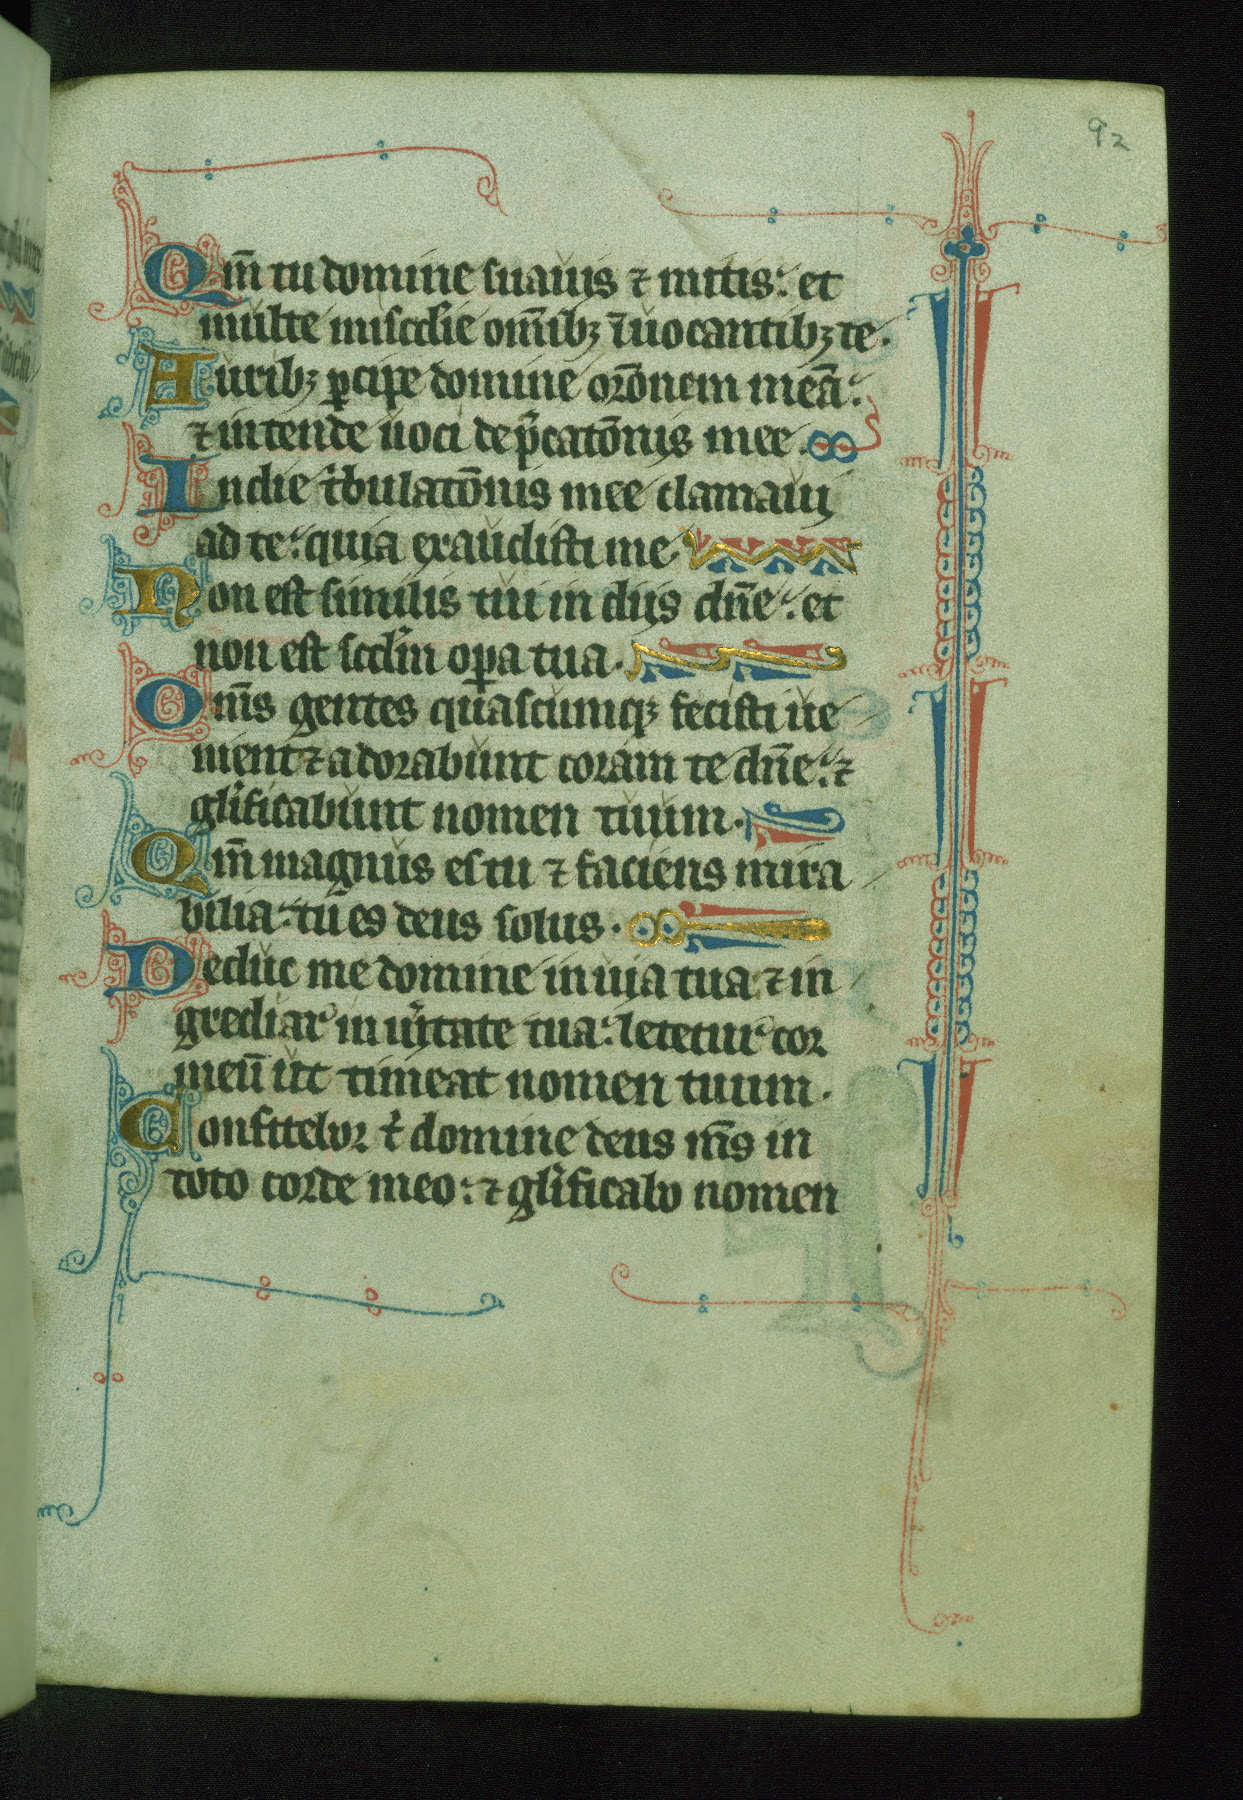 92
Qm̄ tu domine suauis ⁊ mitis: et
multe misc̄die om̄ibꝫ īuocantibꝫ te.
Auribꝫ ꝑcipe domine or̄onem meā:
⁊ intende uoci dep̄catōnis mee.
In die t̾bulatōnis mee clamaui
ad te: quia exaudisti me.
Non est similis tui in diis dn̄e: et
non est scd̄m oꝑa tua.
Om̄s gentes quascumqꝫ fecisti ue
nient ⁊ adorabunt coram te dn̄e: ⁊
gl̄ificabunt nomen tuum.
Qm̄ magnus es tu ⁊ faciens mira
bilia: tu es deus solus.
Deduc me domine in uia tua ⁊ in
grediar in ūitate tua: letetur cor
meū ut timeat nomen tuum.
Confitebor t̾ domine deus m̄s in
toto corde meo: ⁊ gl̄ificabo nomen